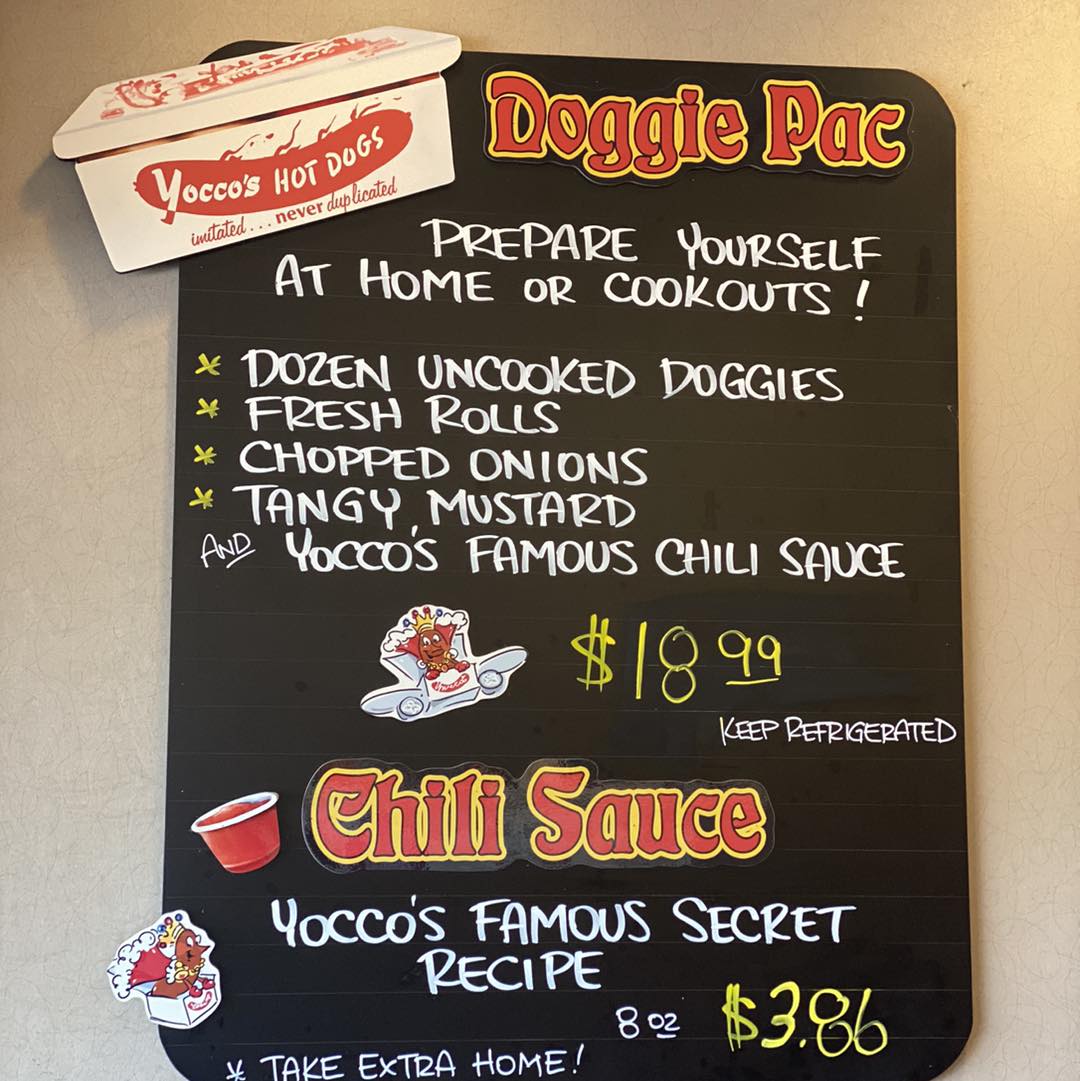 Doggie Pac
Yocco's HOT DOGS
imitated... never duplicated
PREPARE YOURSELF
AT HOME OR COOKOUTS!
* DOZEN UNCOOKED DOGGIES
* FRESH ROLLS
* CHOPPED ONIONS
* TANGY MUSTARD
AND YOCCO'S FAMOUS CHILI SAUCE
Yocco's
$18 99
KEEP REFRIGERATED
Chili Sauce
YOCCO'S FAMOUS SECRET
RECIPE
8 oz $3.86
* TAKE EXTRA HOME!